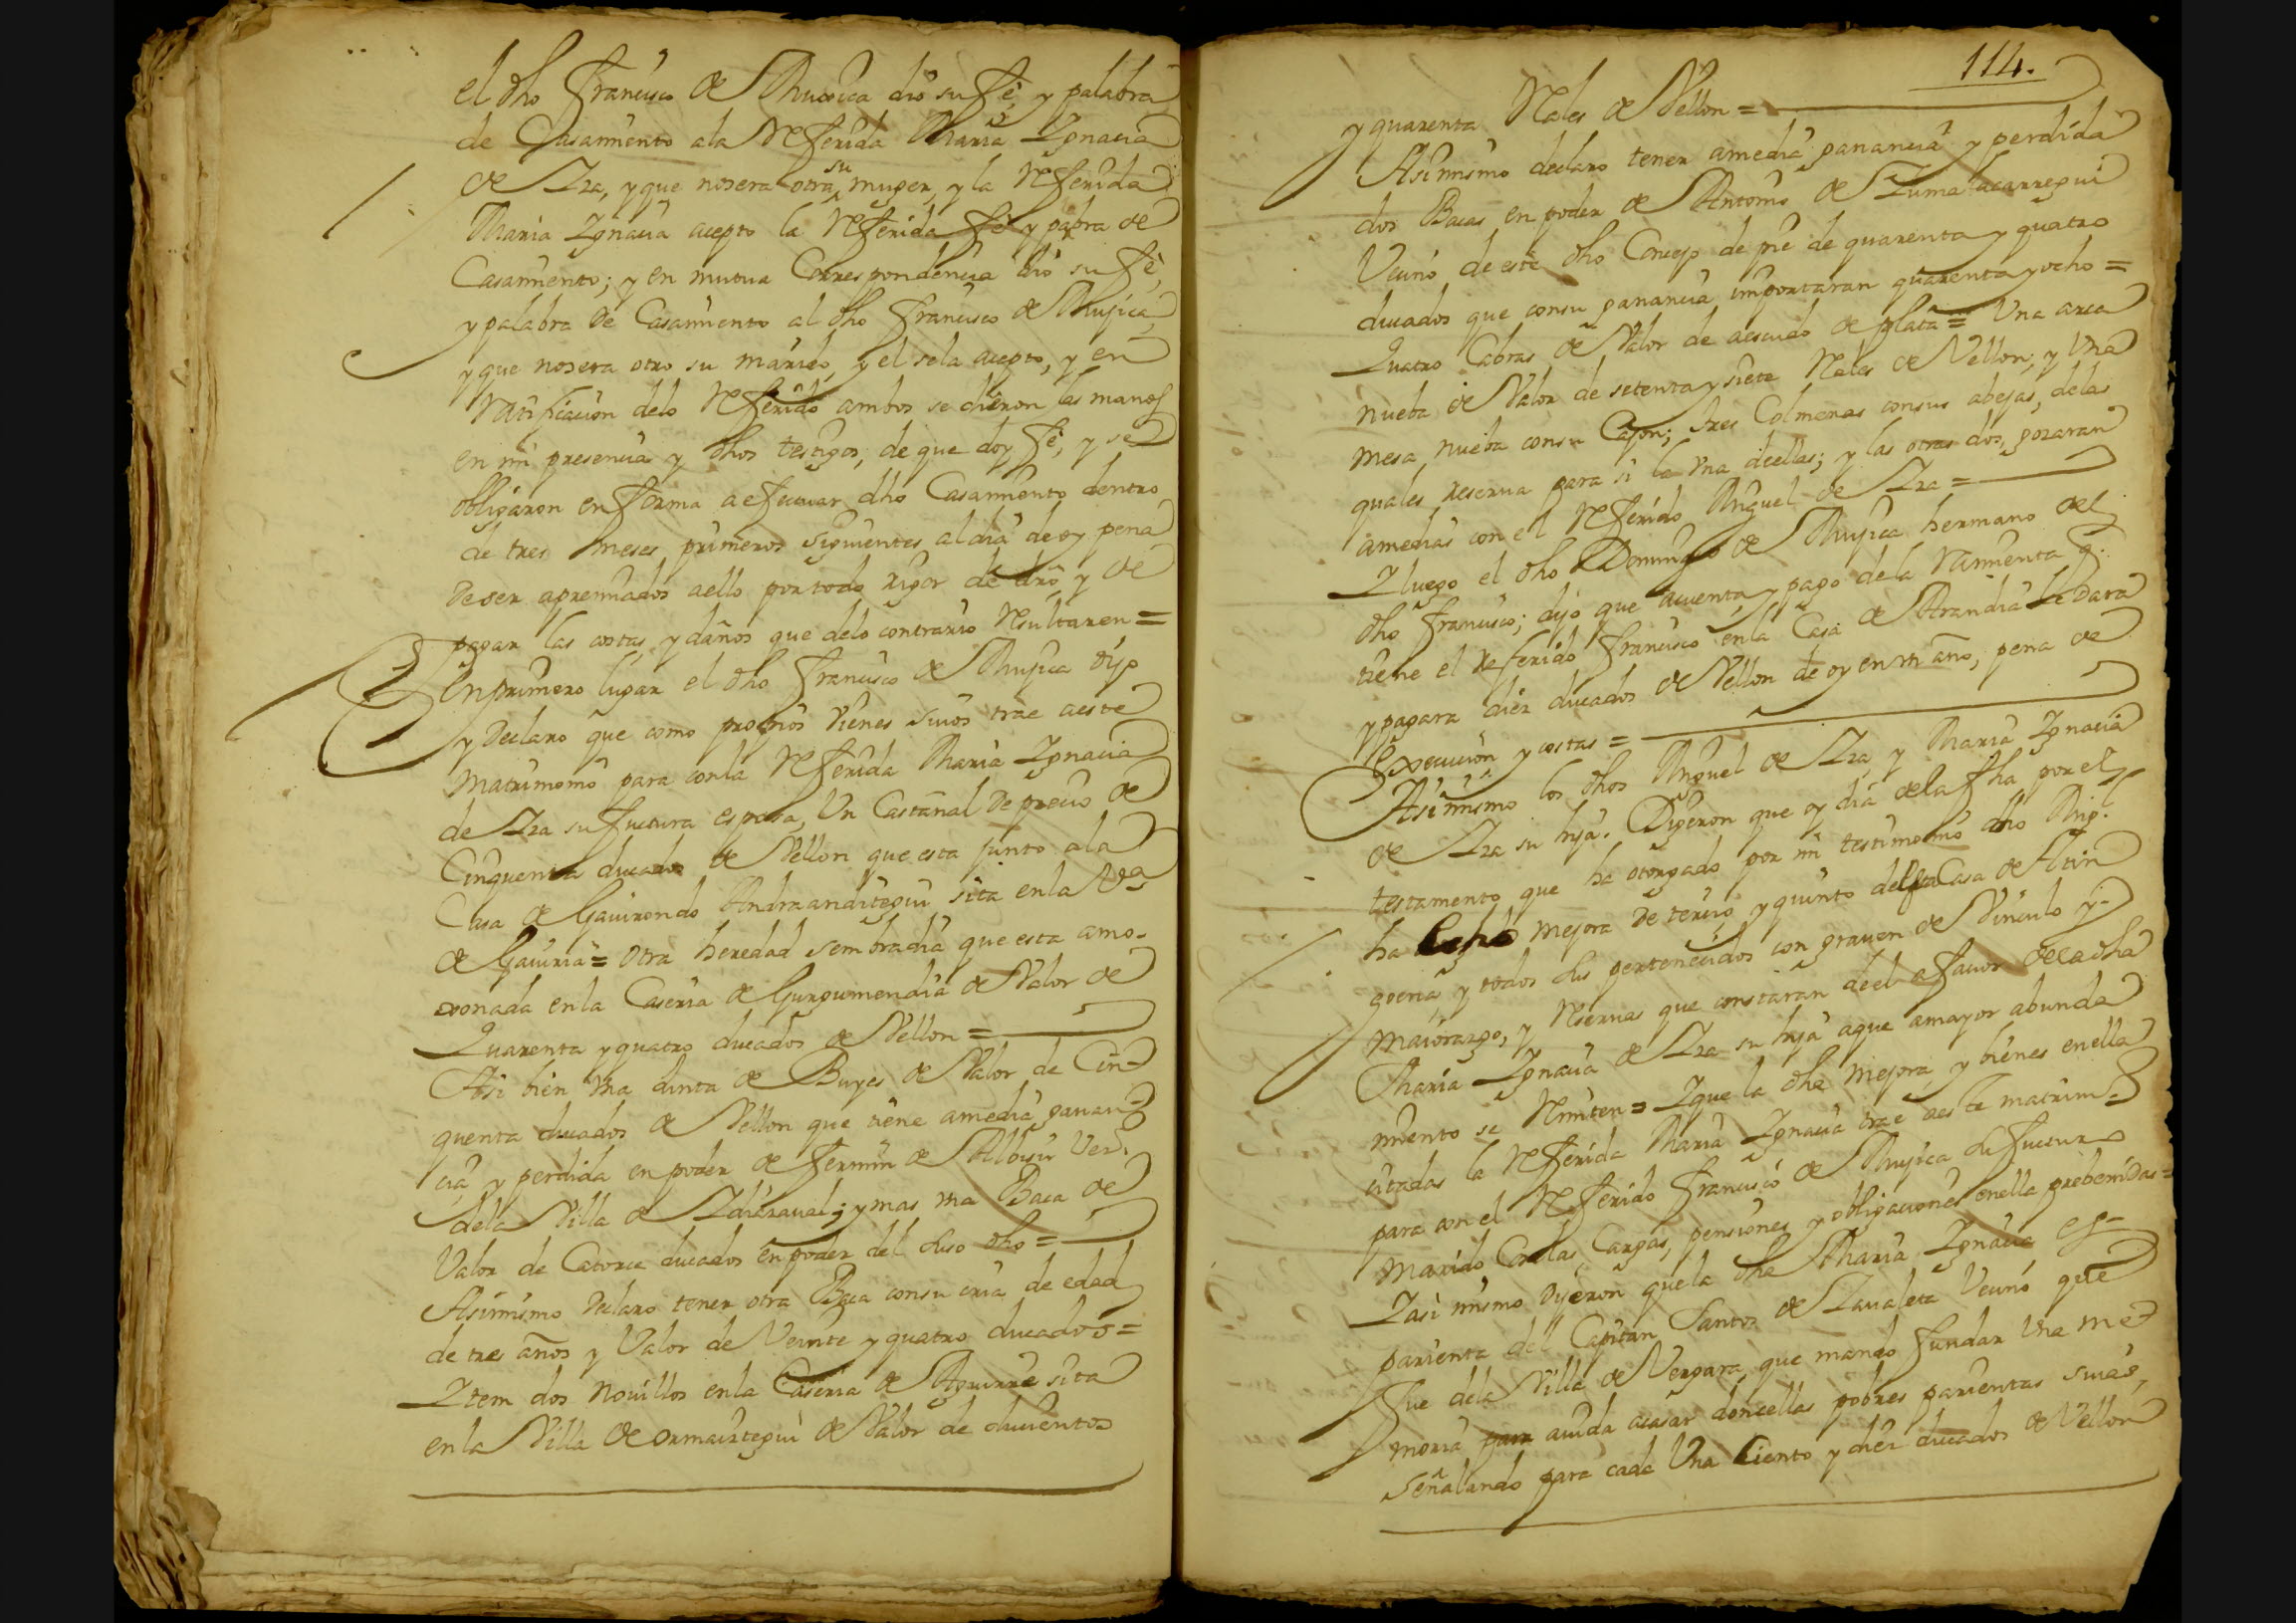 el dho Francisco de Muxica dio su fè, y palabra
de Casamiento ala Referida Maria Ygnacia
de Yza, y que no sera otra su muger, y la Referida
Maria Ygnacia acepto la Referida fè y pabra de
Casamiento; y en mutua Correspondencia dio su fè,
y palabra de Casamiento al dho Francisco de Mujica,
y que no sera otro su marido, y el sela acepto, y en
Ratificacion delo Referido ambos se dieron las manos
en mi presencia y dhos testigos, de que doy fè, y se
obligaron en forma a efectuar dho Casamiento dentro
de tres meses primeros siguientes al dia de oy pena
de ser apremiados a ello por todo rigor de dro, y de
pagar las costas, y daños que delo contrario Resultaren =
En primero lugar el dho Francisco de Mujica dijo
y declaro que como propios vienes suios trae a este
Matrimonio para con la Referida Maria Ygnacia
de Yza su fuctura esposa, Un Castañal de precio de
Cinquenta ducados de Vellon que esta junto ala
Casa de Gauirondo Andraanditegui sita en la Va
de Gauiria = Otra heredad sembradia que esta amo-
xonada en la Caseria de Gurgumendia de Valor de
Quarenta y quatro ducados de Vellon =
Asi bien Una Junta de Buyes de Valor de Cin-
quenta ducados de Vellon que tiene a media ganan-
cia y perdida en poder de Fermin de Albisu Vez.
dela Villa de Ydiazaual; y mas una Baca de
Valor de Catorce ducados en poder del suso dho =
Asimismo declaro tener otra Baca con su cria de edad
de tres años y Valor de Veinte y quatro ducados =
Ytem dos Nouillos en la Caseria de Aguirre sita
en la Villa de ormaiztegui de Valor de ducientos
114.
y quarenta Reales de Vellon =
Asimismo declaro tener a media ganancia y perdida
dos Bacas en poder de Antonio de Zumalacarregui
Vecino de este dho Concejo de pre de quarenta y quatro
ducados que con su ganancia importaran quarenta y ocho =
Quatro Cabras de Valor de a escudo de plata = Una arca
nueba de Valor de setenta y siete Reales de Vellon; y Una
mesa nueba con su Cajon; tres Colmenas con sus abejas, de las
quales reserua para si la Una de ellas; y las otras dos, gozaran
a medias con el Referido Miguel de Yza =
Y luego el dho Domingo de Mujica hermano del
dho Francisco; dijo que a cuenta, y pago de la Rarmienta q.
tiene el Referido Francisco en la Casa de Arandia le dara
y pagara diez ducados de Vellon de oy en un año, pena de
Execucion y costas =
Asimismo los dhos Miguel de Yza y Maria Ygnacia
de Yza su hija. Dixeron que oy dia de la fha por el
testamento que ha otorgado por mi testimonio dho Mig.l
ha hecho mejora de tercio, y quinto de la Casa de
goena, y todos sus pertenecidos con grauen de Vinculo y
maiorazgo, y Reseruas que constaran de el a fauor de la dha
Maria Ygnacia de Yza su hija a que a mayor abunda
miento se Remiten = Y que la dha mejora, y bienes en ella
citadas la Referida Maria Ygnacia trae a este matrim.o
para con el Referido Francisco de Mujica su fucturo
Marido Con las Cargas, pensiones, y obligaciones en ella prebenidas =
Y asi mismo dijeron que la dha Maria Ygnacia es-
parienta del Capitan Santos de Zaualeta Vecino que
fue dela Villa de Vergara, que mando fundar Una me-
moria para auida a casar doncellas pobres parientas suias,
señalando para cada Una Ciento y diez ducados de Vellon